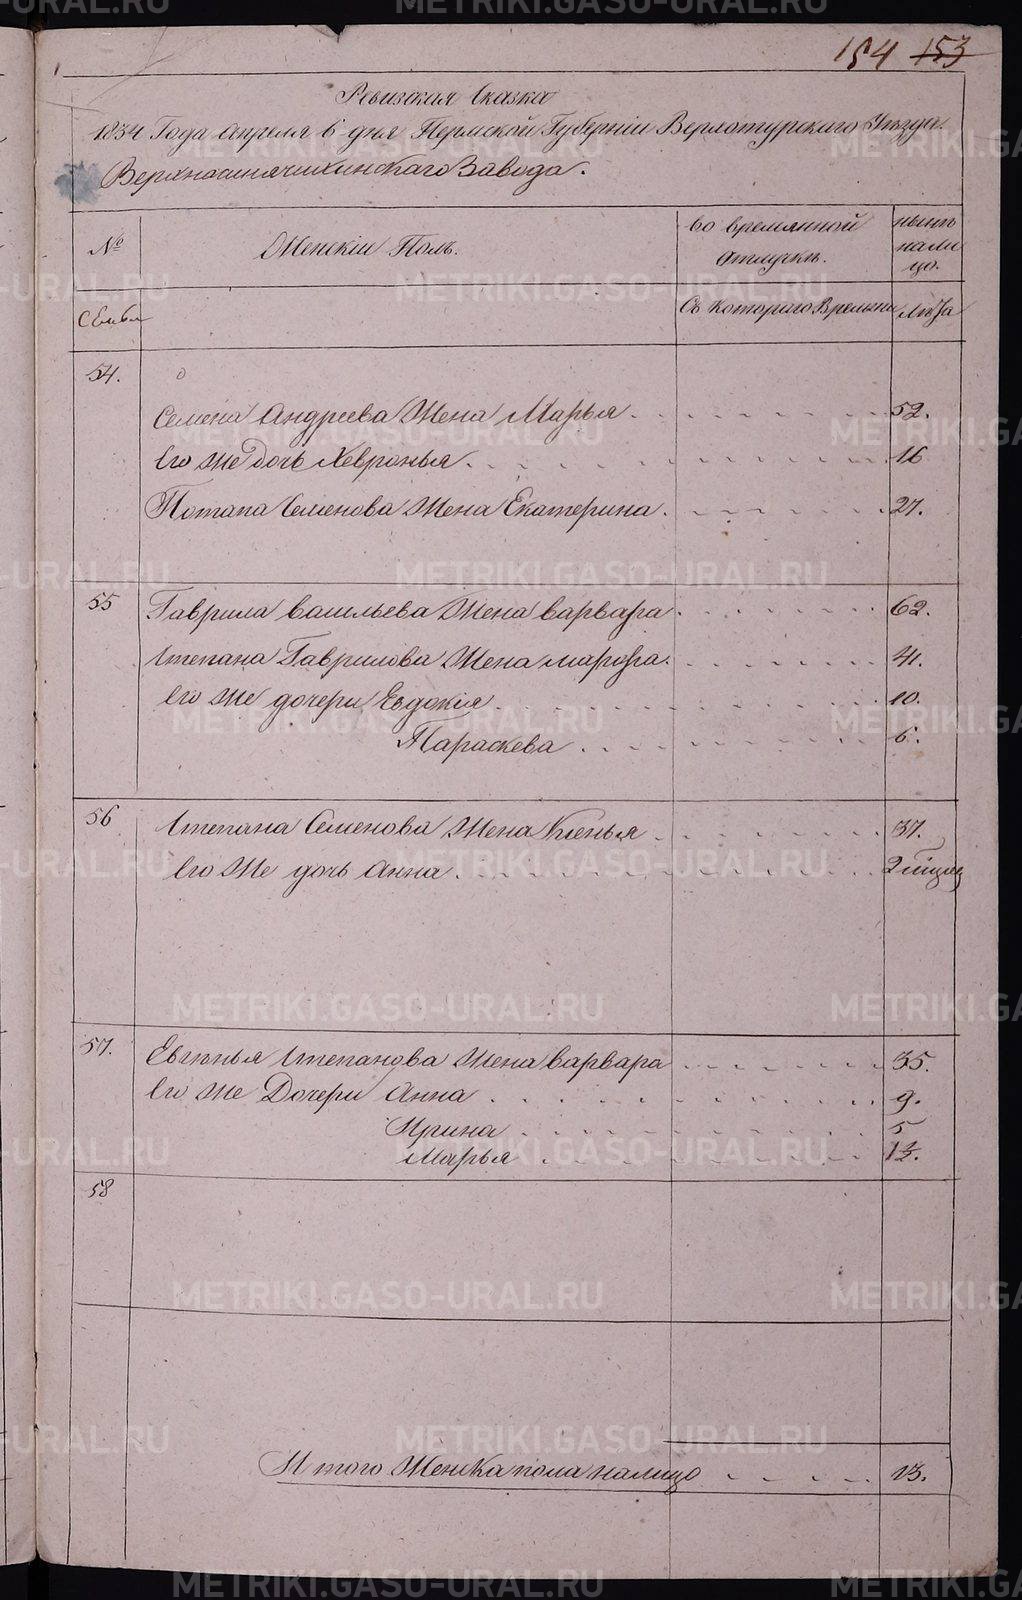 154 153
Ревизская Сказка
1834 Года Апреля 6 дня Пермской Губернiи Верхотурскаго Уезда.
Верхнасинячихинскаго Завода.
№ Женскiй Полъ. во времянной ныне
отлучке. нали
цо.
Семьи Съ котораго Времени лета
54.
Семена Андреева Жена Марья 52.
Его же дочь Хевронья 16
Потапа Семенова Жена Екатерина 27.
55 Гаврила Васильева Жена Варвара 62.
Степана Гаврилова Жена 41.
Его же дочери Евдокiя 10.
Параскева 6.
56 Степана Семенова Жена 37.
Его Же дочь Анна 2
57. Евгенья Степанова Жена Варвара 35.
Его же Дочери Анна 9.
Ирина 5
Марья
58
Итого Женска пола налицо 13.
METRIKI.GASO-URAL.RU